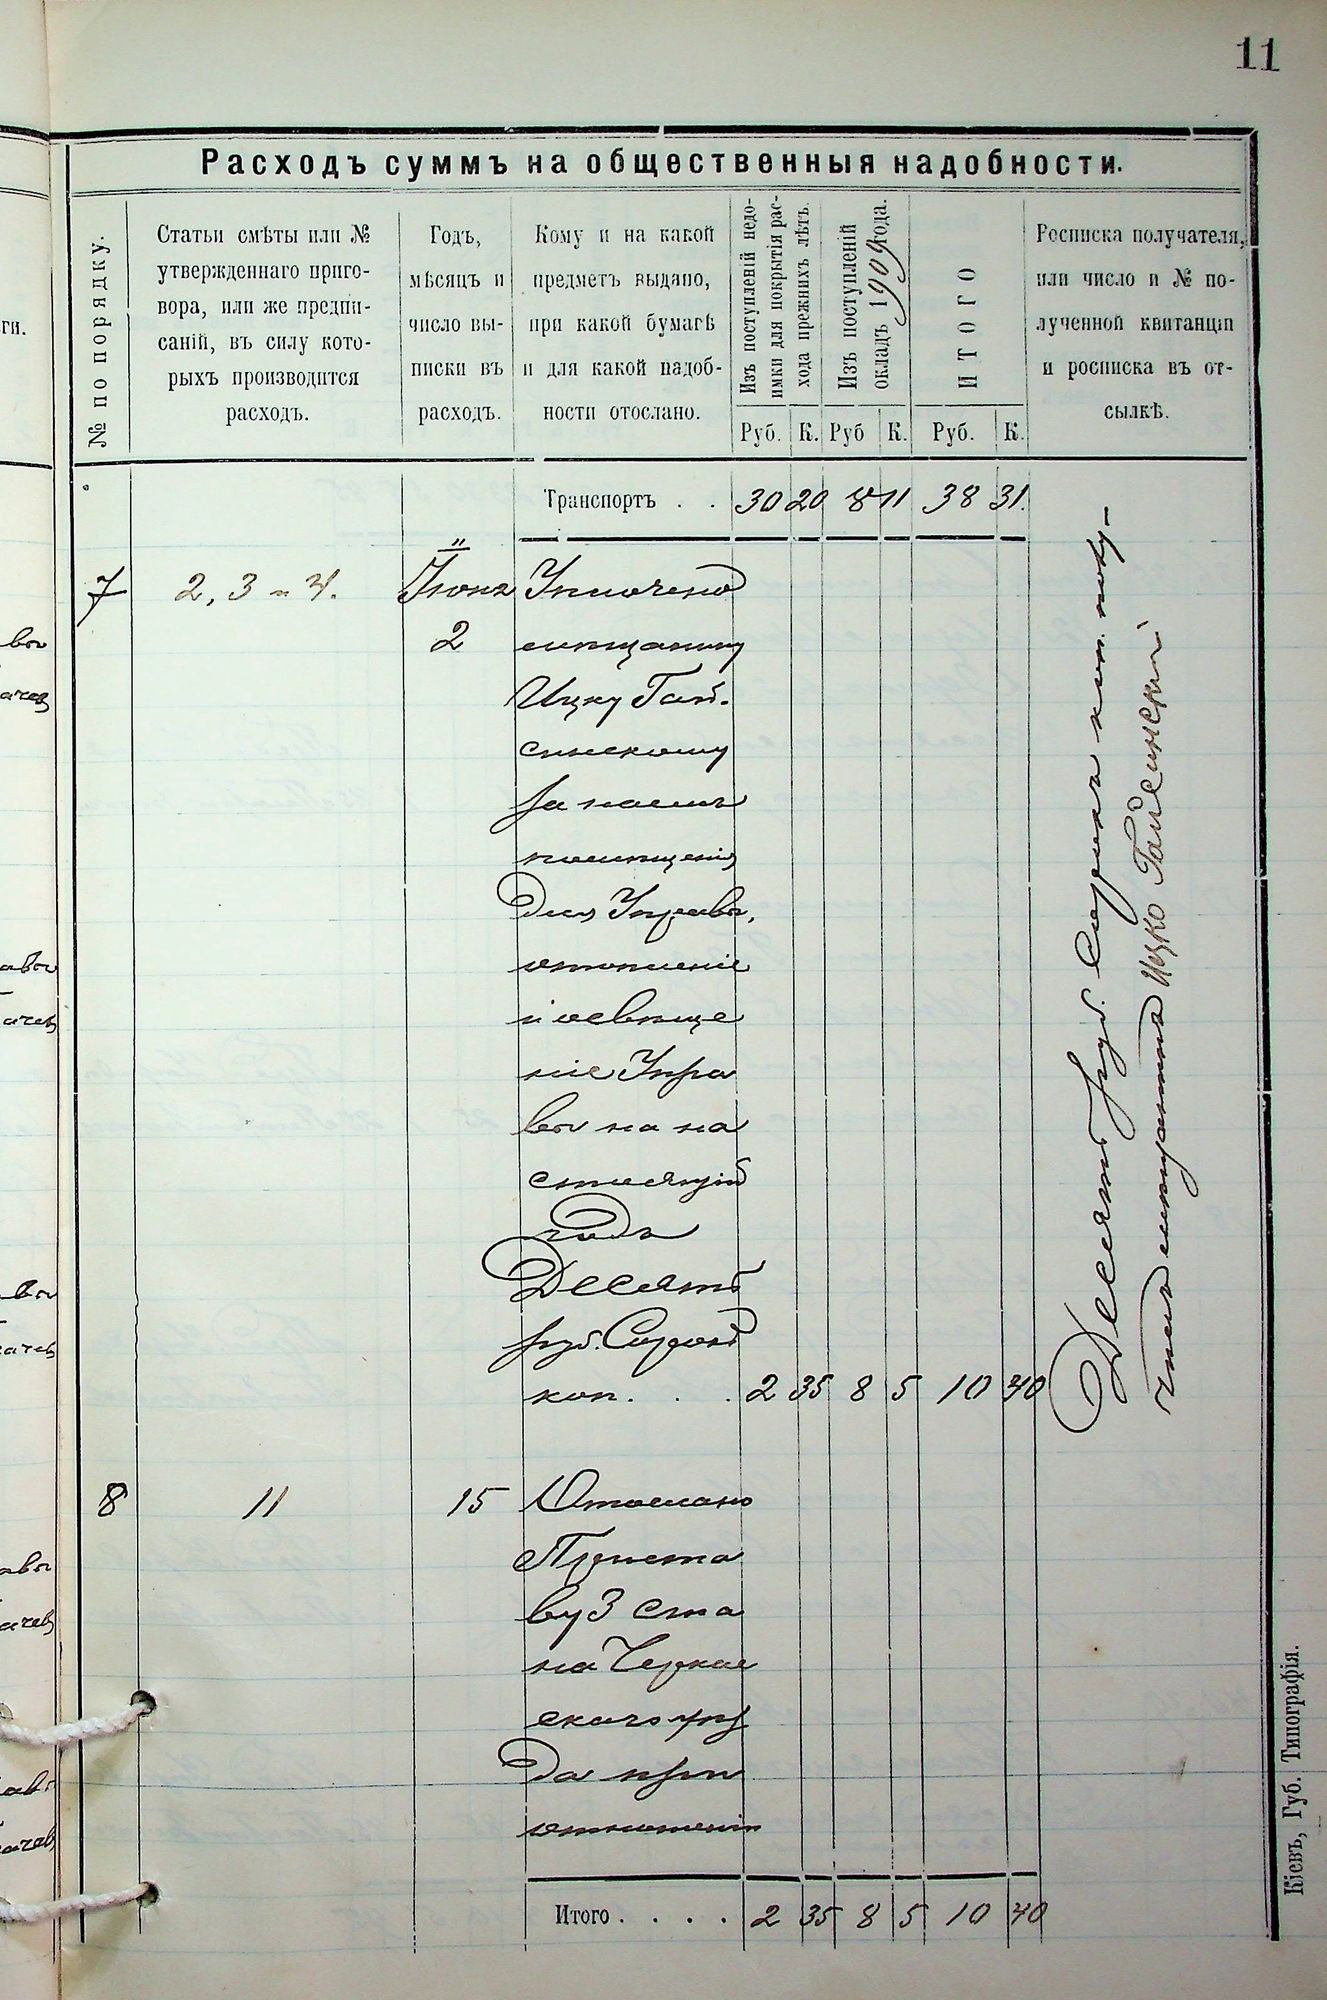 11
Расходъ суммъ на общественныя надобности.
№ по порядку.
Статьи смѣты или №
утвержденнаго приго-
вора, или же предпи-
саній, въ силу кото-
рыхъ производится
расходъ.
Годъ,
мѣсяцъ и
число вы-
писки въ
расходъ.
Кому и на какой
предметъ выдано,
при какой бумагѣ
и для какой надоб-
ности отослано.
Изъ поступленій недо-
имки для покрытія рас-
хода прежнихъ лѣтъ.
Изъ поступленій
окладъ 1909 года.
ИТОГО
Росписка получателя,
или число и № по-
лученной квитанціи
и росписка въ от-
сылкѣ.
Руб. К. Руб К. Руб. К.
Транспортъ . . 30 20 8 11 38 31.
7 2, 3 и 4. Іюня Уплочено
2 мѣщанину
Ицку Гай-
синскому
за наемъ
помѣщенія
для Управы,
отопленіе
и освѣще
ніе Упра
вы на на
стоящій
годъ
Десять
руб. Сорокъ
коп. . . 2 35 8 5 10 40
Десять руб. Сорокъ коп. полу-
чилъ мѣщанинъ Ицко Гайсинскій
8 11 15 Отослано
Приста
ву 3 ста
на Черкас
скаго уѣз
да при
отношеніи
Итого . . . . 2 35 8 5 10 40
Кіевъ, Губ. Типографія.